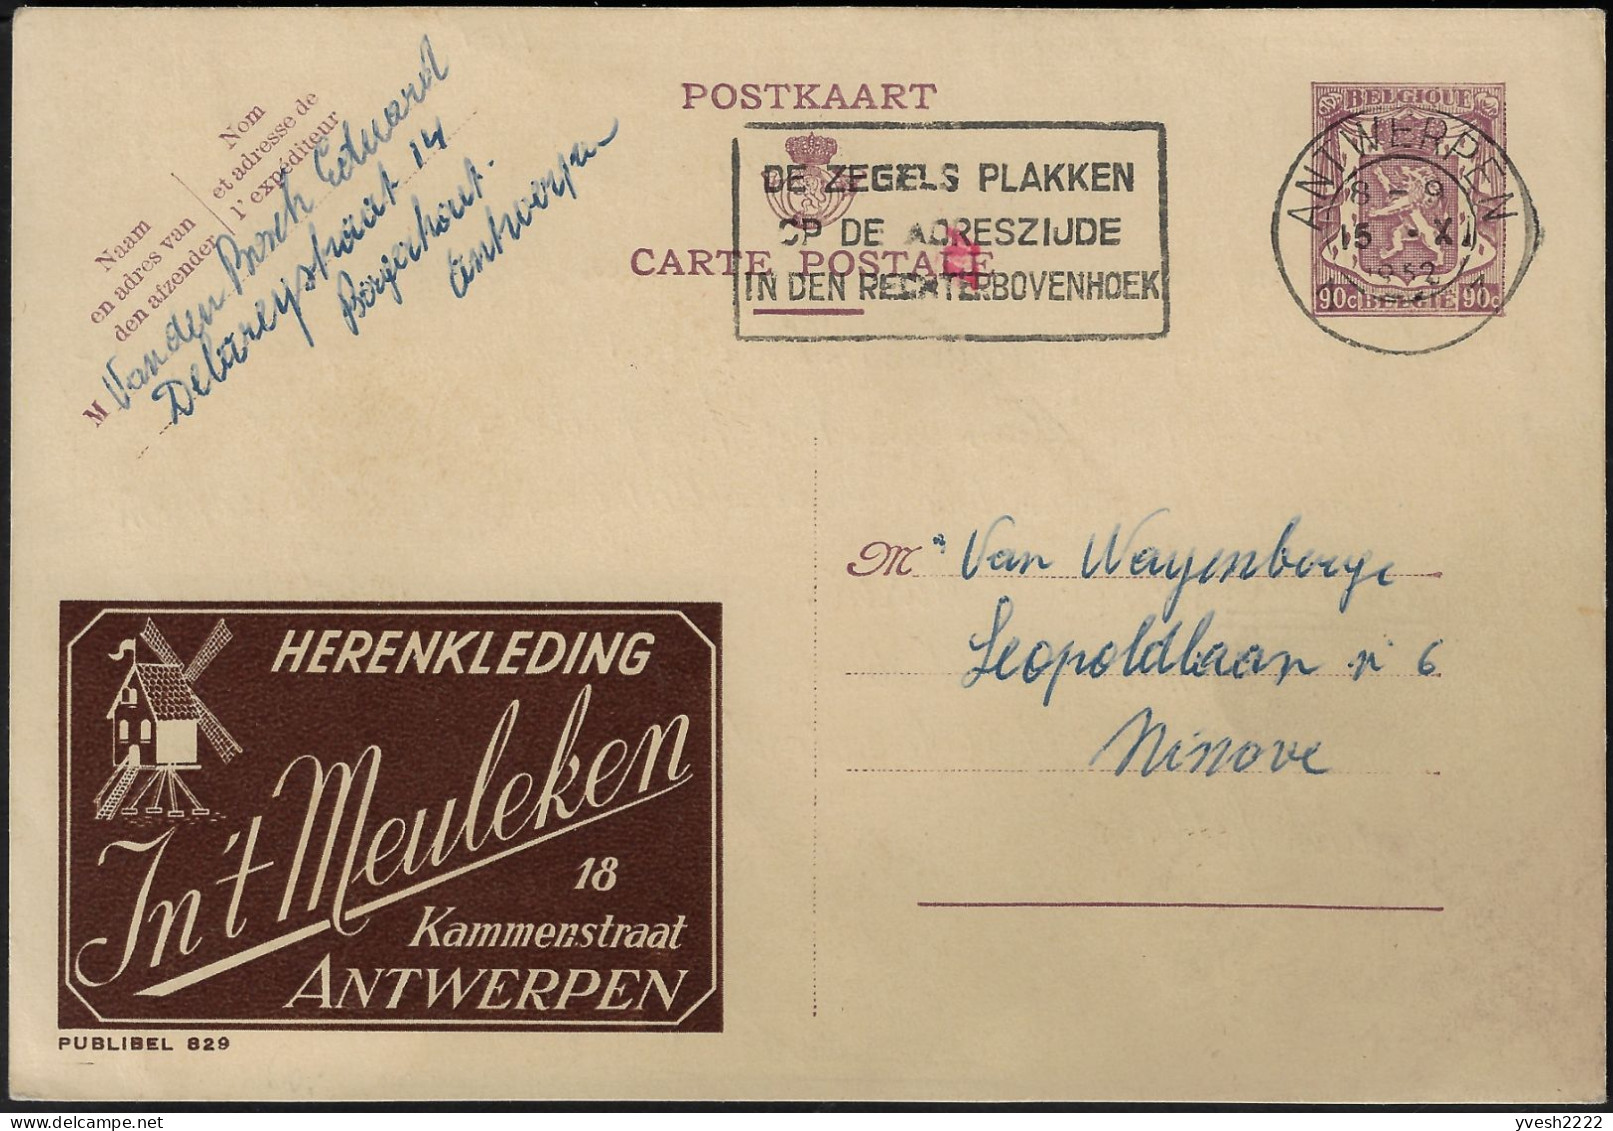 POSTKAART
CARTE POSTALE
Nom
et adresse de
l'expéditeur
Naam
en adres van
den afzender
M Van den Bosch Eduard
14
Borgerhout.
Antwerpen
DE ZEGELS PLAKKEN
OP DE ADRESZIJDE
IN DEN RECHTERBOVENHOEK
BELGIQUE
90c BELGIË 90c
ANTWERPEN
8 - 9
15 - XI
1952
M r Van Waeyenberge
Leopoldlaan nr 6
Ninove
HERENKLEDING
In 't Meuleken
18
Kammenstraat
ANTWERPEN
PUBLIBEL 829
yvesh2222